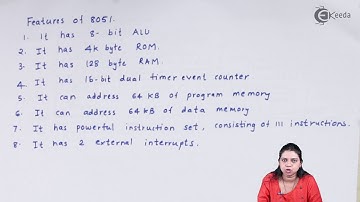 Ekeeda
Features of 8051.
1. It has 8-bit ALU
2. It has 4k byte ROM.
3. It has 128 byte RAM.
4. It has 16-bit dual timer event counter
5. It can address 64 KB of program memory
6. It can address 64 KB of data memory
7. It has powerful instruction set, consisting of 111 instructions.
8. It has 2 external interrupts.